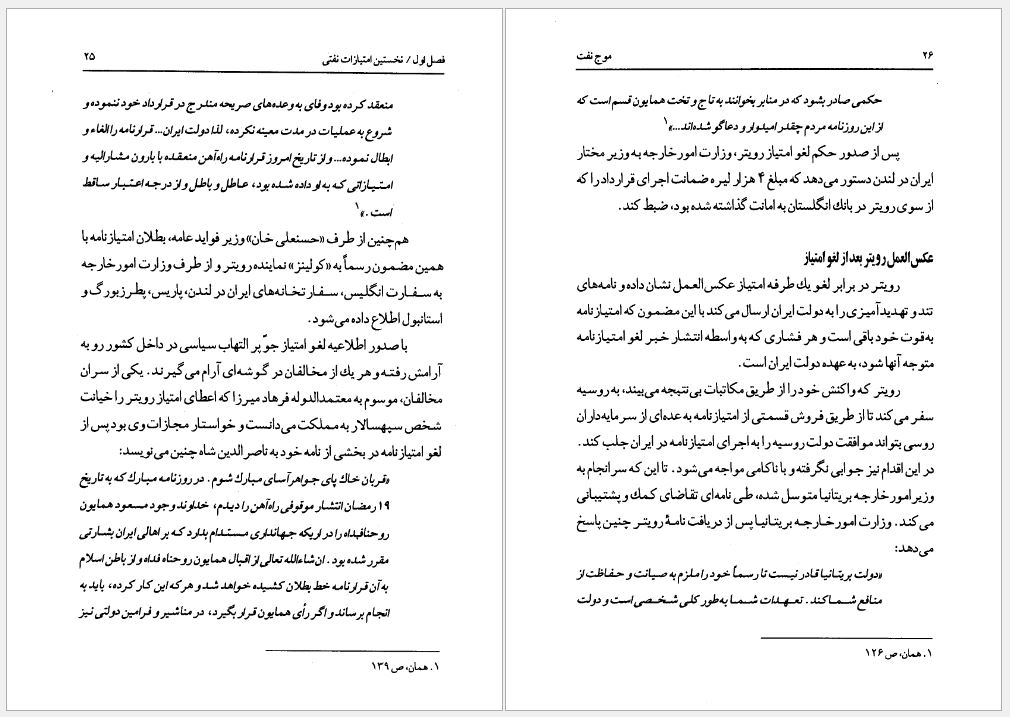 فصل اول / نخستین امتیازات نفتی ۲۵
منعقد کرده بود وفای به وعده‌های صریحه مندرج در قرارداد خود ننموده و
شروع به عملیات در مدت معینه نکرده، لذا دولت ایران... قرارنامه را الغاء و
ابطال نموده... و از تاریخ امروز قرارنامه راه‌آهن منعقده با بارون مشارالیه و
امتیازاتی که به او داده شده بود، عاطل و باطل و از درجه اعتبار ساقط
است.»۱
هم‌چنین از طرف «حسنعلی خان» وزیر فواید عامه، بطلان امتیازنامه با
همین مضمون رسماً به «کولینز» نماینده رویتر و از طرف وزارت امور خارجه
به سفارت انگلیس، سفارتخانه‌های ایران در لندن، پاریس، پطرزبورگ و
استانبول اطلاع داده می‌شود.
با صدور اطلاعیه لغو امتیاز جوّ پر التهاب سیاسی در داخل کشور رو به
آرامش رفته و هر یك از مخالفان در گوشه‌ای آرام می‌گیرند. یکی از سران
مخالفان، موسوم به معتمدالدوله فرهاد میرزا که اعطای امتیاز رویتر را خیانت
شخص سپهسالار به مملکت می‌دانست و خواستار مجازات وی بود پس از
لغو امتیازنامه در بخشی از نامه خود به ناصرالدین شاه چنین می‌نویسد:
«قربان خاك پای جواهرآسای مبارك شوم. در روزنامه مبارك که به تاریخ
۱۹ رمضان انتشار موقوفی راه‌آهن را دیدم، خداوند وجود مسعود همایون
روحنافداه را در اریکه جهانداری مستدام بدارد که بر اهالی ایران بشارتی
مقرر شده بود. ان‌شاءالله تعالی از اقبال همایون روحناه فداه و از باطن اسلام
به آن قرارنامه خط بطلان کشیده خواهد شد و هر که این کار کرده، باید به
انجام برساند و اگر رأی همایون قرار بگیرد، در مناشیر و فرامین دولتی نیز
۱. همان، ص ۱۳۹
۲۶ موج نفت
حکمی صادر بشود که در منابر بخوانند به تاج و تخت همایون قسم است که
از این روزنامه مردم چقدر امیدوار و دعاگو شده‌اند...»۱
پس از صدور حکم لغو امتیاز رویتر، وزارت امور خارجه به وزیر مختار
ایران در لندن دستور می‌دهد که مبلغ ۴ هزار لیره ضمانت اجرای قرارداد را که
از سوی رویتر در بانك انگلستان به امانت گذاشته شده بود، ضبط کند.
عکس‌العمل رویتر بعد از لغو امتیاز
رویتر در برابر لغو یك طرفه امتیاز عکس‌العمل نشان داده و نامه‌های
تند و تهدیدآمیزی را به دولت ایران ارسال می‌کند با این مضمون که امتیازنامه
به‌قوت خود باقی است و هر فشاری که به‌واسطه انتشار خبر لغو امتیازنامه
متوجه آنها شود، به عهده دولت ایران است.
رویتر که واکنش خود را از طریق مکاتبات بی‌نتیجه می‌بیند، به روسیه
سفر می‌کند تا از طریق فروش قسمتی از امتیازنامه به عده‌ای از سرمایه‌داران
روسی بتواند موافقت دولت روسیه را به اجرای امتیازنامه در ایران جلب کند.
در این اقدام نیز جوابی نگرفته و با ناکامی مواجه می‌شود. تا این که سرانجام به
وزیر امور خارجه بریتانیا متوسل شده، طی نامه‌ای تقاضای کمك و پشتیبانی
می‌کند. وزارت امور خارجه بریتانیا پس از دریافت نامهٔ رویتر چنین پاسخ
می‌دهد:
«دولت بریتانیا قادر نیست تا رسماً خود را ملزم به صیانت و حفاظت از
منافع شما کند. تعهدات شما به‌طور کلی شخصی است و دولت
۱. همان، ص ۱۲۶